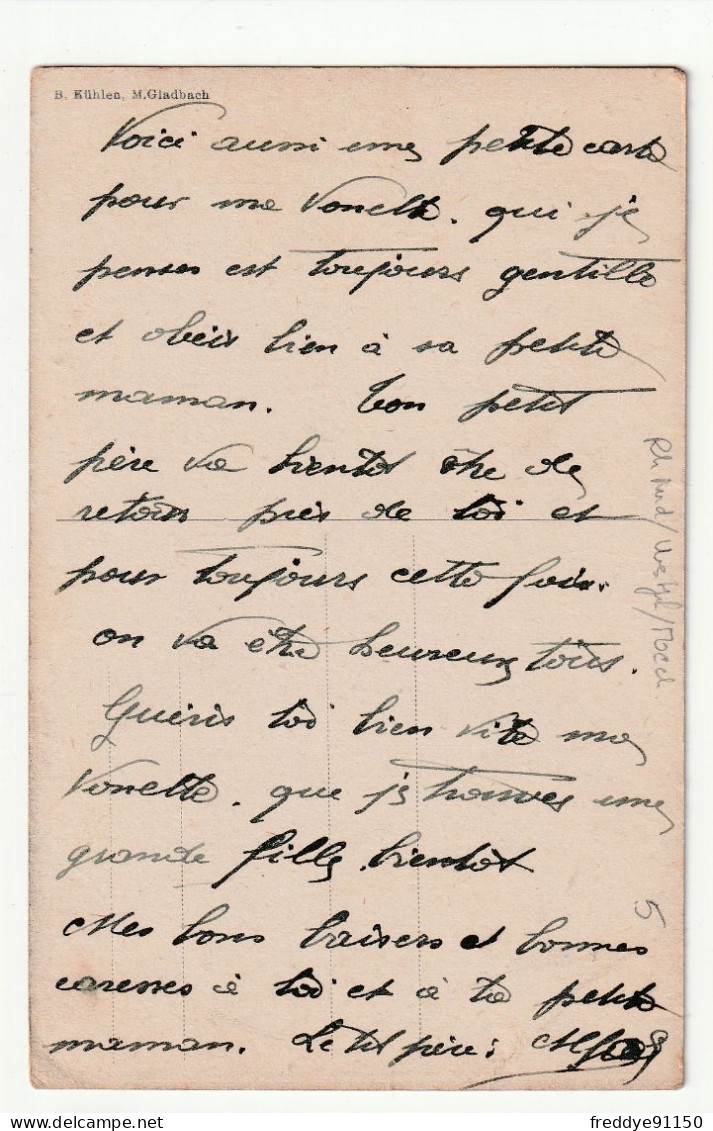 B. Kühlen, M.Gladbach
Voici aussi une petite carte
pour ma Vonette. qui je
penses est toujours gentille
et obéis bien à sa petite
maman. Ton petit
père va bientot être de
retour près de toi et
pour toujours cette fois.
on va être heureux tous.
Guéris toi bien vite ma
Vonette. que je trouves une
grande fille bientôt
Mes bons baisers et bonnes
caresses à toi et à ta petite
maman. Le tit père :
5
https://www.delcampe.net
freddye91150